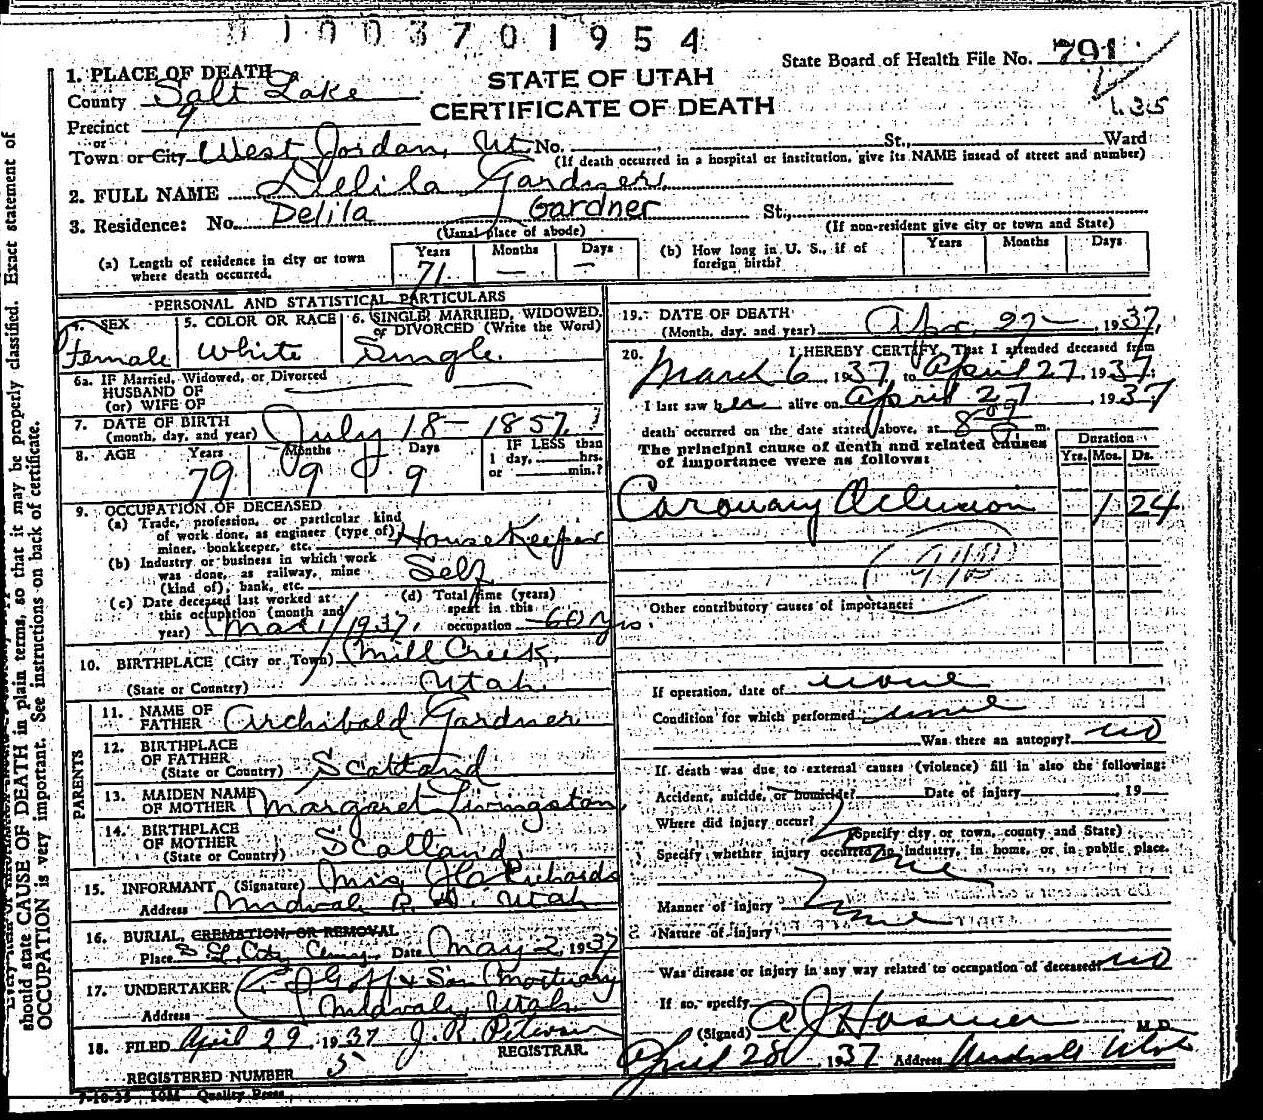 01003701954
State Board of Health File No. 791
135
STATE OF UTAH
CERTIFICATE OF DEATH
1. PLACE OF DEATH
County Salt Lake
Precinct 9
or
Town or City West Jordan, Ut. No. St., Ward
(If death occurred in a hospital or institution, give its NAME instead of street and number)
2. FULL NAME Delila Gardner
3. Residence: No. Delila Gardner St.,
(Usual place of abode) (If non-resident give city or town and State)
(a) Length of residence in city or town where death occurred. Years 71 Months — Days —
(b) How long in U. S., if of foreign birth? Years Months Days
PERSONAL AND STATISTICAL PARTICULARS
SEX Female
5. COLOR OR RACE White
6. SINGLE, MARRIED, WIDOWED, or DIVORCED (Write the Word) Single
6a. IF Married, Widowed, or Divorced
HUSBAND OF
(or) WIFE OF
7. DATE OF BIRTH
(month, day, and year) July 18 - 1857
8. AGE Years 79 Months 9 Days 9
IF LESS than 1 day, hrs. or min.?
9. OCCUPATION OF DECEASED
(a) Trade, profession, or particular kind of work done, as engineer (type of) miner, bookkeeper, etc. House Keeper
(b) Industry or business in which work was done, as railway, mine (kind of), bank, etc. Self
(c) Date deceased last worked at this occupation (month and year) Mar 1/1937.
(d) Total time (years) spent in this occupation 60 yrs.
10. BIRTHPLACE (City or Town) Mill Creek,
(State or Country) Utah.
PARENTS
11. NAME OF FATHER Archibald Gardner
12. BIRTHPLACE OF FATHER
(State or Country) Scotland
13. MAIDEN NAME OF MOTHER Margaret Livingston
14. BIRTHPLACE OF MOTHER
(State or Country) Scotland
15. INFORMANT (Signature) Mrs. Richards
Address Midvale R. D. Utah
16. BURIAL, CREMATION, OR REMOVAL
Place S L City Cemy. Date May 2, 1937
17. UNDERTAKER Goff & Son Mortuary
Address Midvale, Utah
18. FILED April 29, 1937 J. R. Peterson
REGISTRAR.
REGISTERED NUMBER 5
7-10-35 10M Quality Press
19. DATE OF DEATH
(Month, day, and year) Apr. 27 - 1937.
20. I HEREBY CERTIFY, That I attended deceased from
March 6, 1937, to April 27, 1937.
I last saw her alive on April 27, 1937
death occurred on the date stated above, at m.
The principal cause of death and related causes of importance were as follows:
Duration
Yrs. Mos. Ds.
Caronary Oclusion 1 24
Other contributory causes of importance:
If operation, date of none
Condition for which performed none
Was there an autopsy? no
If death was due to external causes (violence) fill in also the following:
Accident, suicide, or homicide? Date of injury 19
Where did injury occur?
(Specify city, or town, county and State)
Specify whether injury occurred in industry, in home, or in public place.
none
Manner of injury
Nature of injury none
Was disease or injury in any way related to occupation of deceased? no
If so, specify
(Signed) A J Hosmer M.D.
April 28 1937 Address Midvale Utah
should state CAUSE OF DEATH in plain terms, so that it may be properly classified. Exact statement of
OCCUPATION is very important. See instructions on back of certificate.